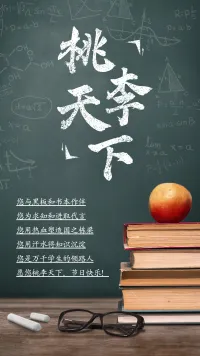 桃李天下
您与黑板和书本作伴
您为求知和进取代言
您用热血塑造国之栋梁
您用汗水将知识沉淀
您是万千学生的领路人
愿您桃李天下，节日快乐!